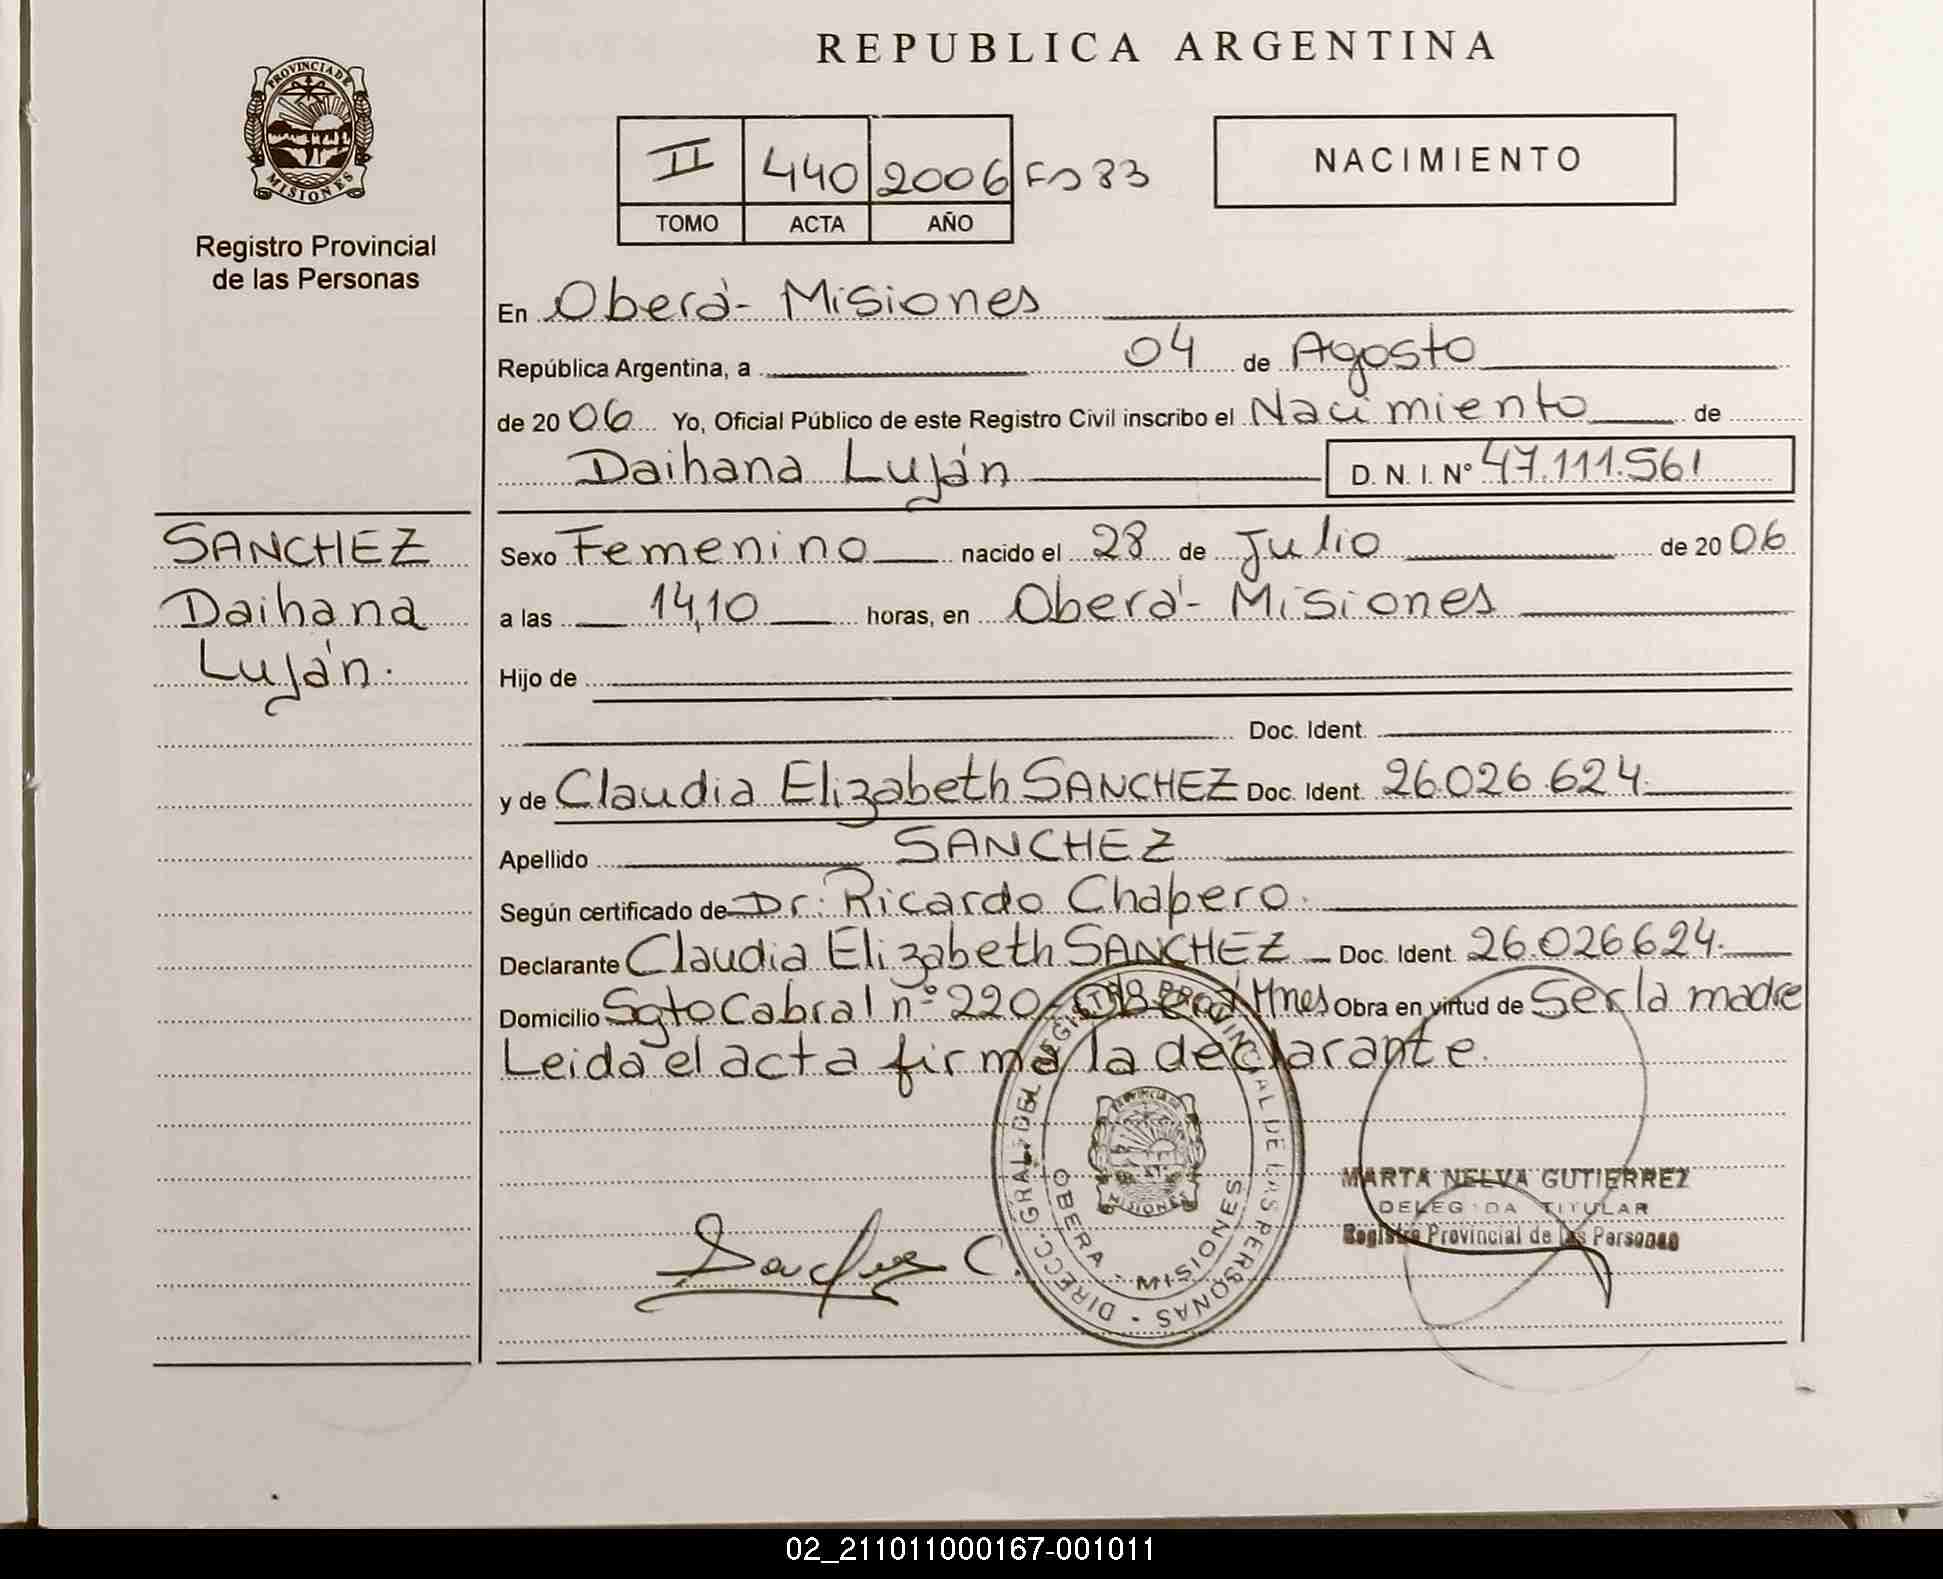 REPUBLICA ARGENTINA
PROVINCIA DE
MISIONES
Registro Provincial
de las Personas
II 440 2006 Fs 83
TOMO ACTA AÑO
NACIMIENTO
En Oberá - Misiones
República Argentina, a 04 de Agosto
de 2006 Yo, Oficial Público de este Registro Civil inscribo el Nacimiento de
Daihana Luján D. N. I. Nº 47.111.561
SANCHEZ
Daihana
Luján.
Sexo Femenino nacido el 28 de Julio de 2006
a las 14,10 horas, en Oberá - Misiones
Hijo de
Doc. Ident.
y de Claudia Elizabeth SANCHEZ Doc. Ident. 26.026.624.
Apellido SANCHEZ
Según certificado de Dr. Ricardo Chapero.
Declarante Claudia Elizabeth SANCHEZ Doc. Ident. 26.026.624.
Domicilio Sgto Cabral nº 220 - Oberá Mnes Obra en virtud de Ser la madre
Leida el acta firma la declarante.
DIRECC. GRAL. DEL REGISTRO PROVINCIAL DE LAS PERSONAS
PROVINCIA DE
MISIONES
OBERA - MISIONES
Sanchez C.
MARTA NELVA GUTIERREZ
DELEGADA TITULAR
Registro Provincial de las Personas
02_211011000167-001011